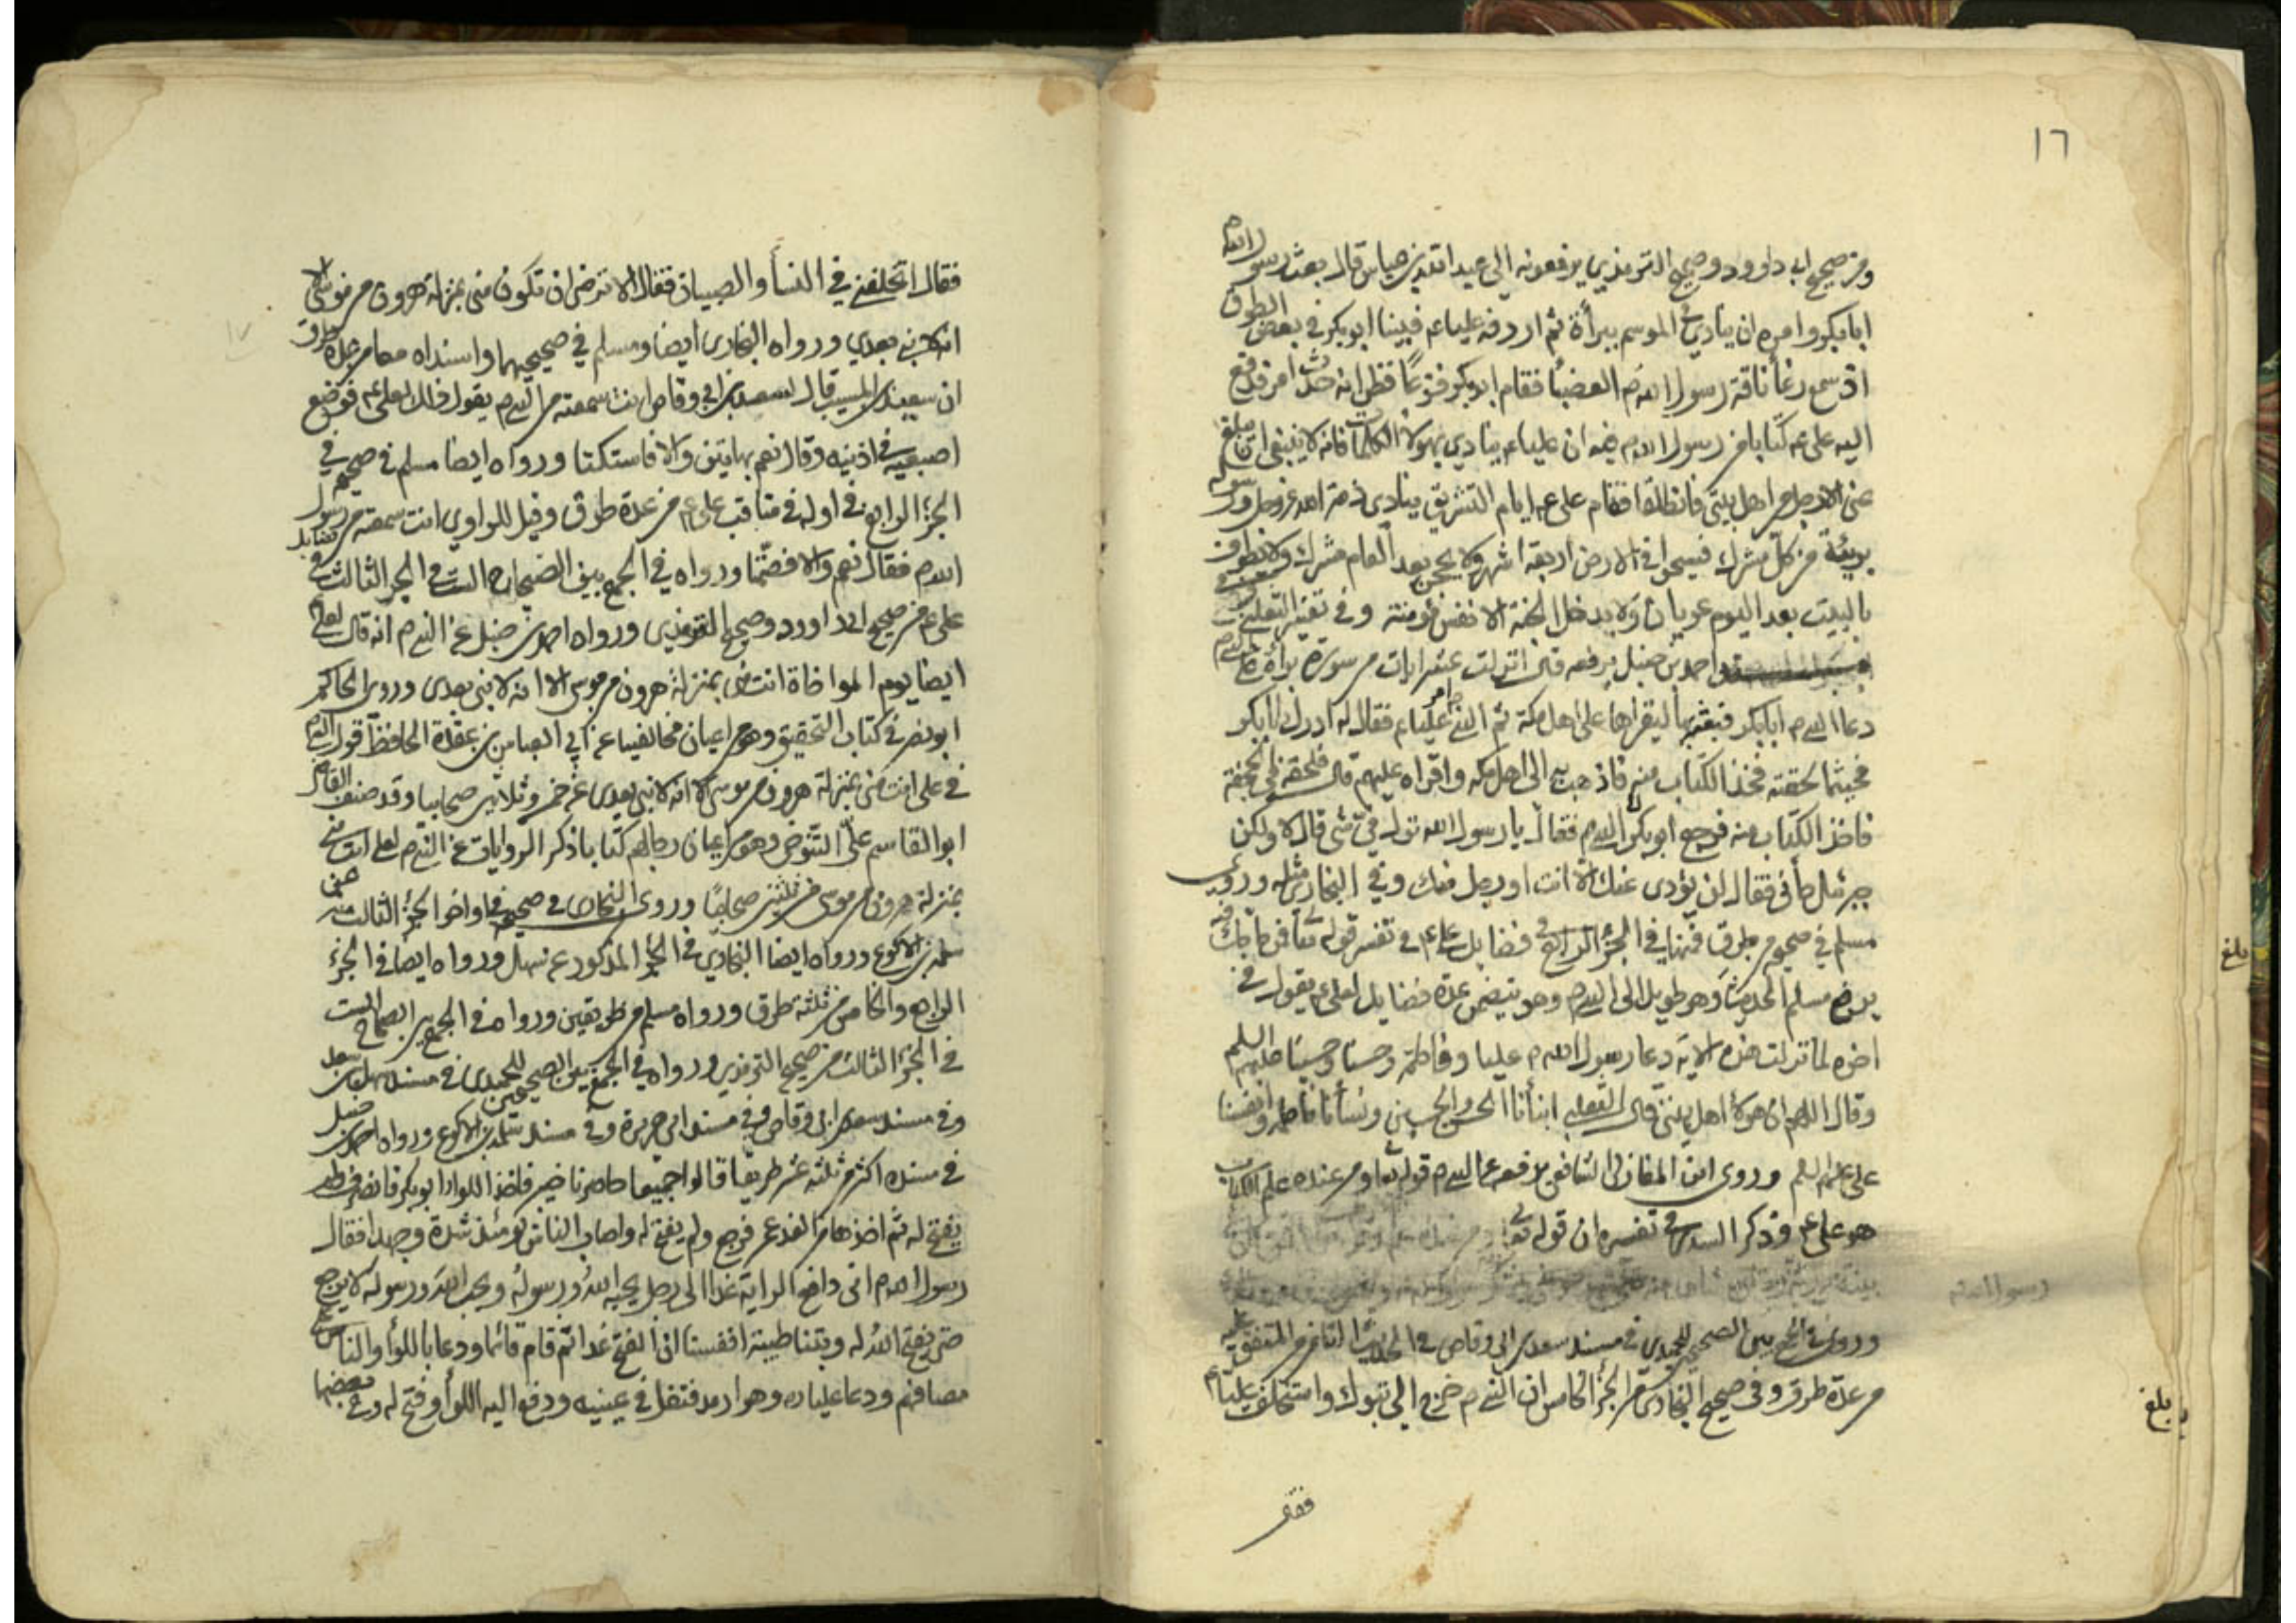 ١٦
ومن صحيح ابى داوود وصحيح الترمذي يرفعونه الى عبد الله بن عباس قال بعث رسول الله م
ابا بكر وامره ان ينادي في الموسم ببرأة ثم اردفه عليا ع فبينا ابو بكر في بعض الطريق
اذ سمع رغأ ناقة رسول الله م العضبا فقام ابو بكر فزعًا فظن انه حدث امر فدفع
اليه علي ع كتابا من رسول الله م فيه ان عليا ع ينادي بهولأ الكلمات فانه لا ينبغي ان يبلغ
عنى الا رجل من اهل بيتي فانطلقا فقام على ع ايام التشريق ينادى ذمة الله عز وجل ورسوله
بريئة من كل مشرك فسيحوا في الارض اربعة اشهر ولا يحجن بعد العام مشرك ولا يطوفن
بالبيت بعد اليوم عريان ولا يدخل الجنة الا نفس مؤمنة وفي تفسير الثعلبي
واحمد بن حنبل يرفعه قال انزلت عشر ايات من سورة برأة على النبي م
دعا النبي م ابا بكر فبعثه بها ليقراها على اهل مكة ثم النبي م امر عليا ع فقال له ادرك ابا بكر
فحيثما لحقته فخذ الكتاب منه فاذهب به الى اهل مكه واقراه عليهم قال فلحقه في الجحفة
فاخذ الكتاب منه فرجع ابو بكر الى النبي م فقال يا رسول الله نزل في شئ قال لا ولكن
جبرئيل جأنى فقال لن يؤدى عنك الا انت او رجل منك وفي البخارى مثله وروى
مسلم في صحيحه من طرق فمنها في الجزؤ الرابع في فضايل على ع في تفسير قوله تعا فمن حاجك فيه
يرفع مسلم الحديث وهو طويل الى النبي م وهو يتضمن عدة فضايل لعلى ع يقول في
اخره لما نزلت هذه الاية دعا رسول الله م عليا وفاطمة وحسنا وحسينا عليهم السلم
وقال اللهم ان هولأ اهل بيتى قال الثعلبي ابنأنا الحسن والحسين ونسأنا فاطمة وانفسنا
على عليهم السلم وروى ابن المغازلى الشافعي يرفعه الى النبي م قوله تعا ومن عنده علم الكتاب
هو على ع وذكر السدى في تفسيره ان قوله تعا
رسول الله م
وروى في الجمع بين الصحيحين للحميدى في مسند سعد بن ابى وقاص في الحديث الثامن من المتفق عليه
من عدة طرق وفى صحيح البخارى في الجزؤ الخامس ان النبي م خرج الى تبوك واستخلف عليا ع
فقا
بلغ
بلغ
١٧
فقال اتخلفني في النسأ والصبيان فقال الا ترضى ان تكون منى بمنزلة هرون من موسى الا
انه لا نبي بعدي ورواه البخارى ايضا ومسلم في صحيحيهما واسنداه معا من عدة طرق
ان سعيد بن المسيب قال لسعد بن ابى وقاص انت سمعته من النبي م يقول ذلك لعلى ع فوضع
اصبعيه في اذنيه وقال نعم بهاتين والا فاستكتا ورواه ايضا مسلم في صحيحه في
الجزؤ الرابع في اوله في مناقب على ع من عدة طرق وقيل للراوي انت سمعته من رسول
الله م فقال نعم والا فصمّتا ورواه في الجمع بين الصحاح الست في الجزؤ الثالث في فضايل
على ع من صحيح ابى داوود وصحيح الترمذي ورواه احمد بن حنبل عن النبي م انه قال لعلى ع
ايضا يوم المواخاة انت منى بمنزلة هرون من موسى الا انه لا نبى بعدى وروى الحاكم
ابو نصر في كتاب التحقيق وهو من اعيان مخالفينا عن ابي العباس بن عقدة الحافظ قول النبي م
في على انت منى بمنزلة هرون من موسى الا انه لا نبى بعدى عن خمس وثلاثين صحابيا وقد صنف القاضى
ابو القاسم علي التنوخى وهو من اعيان رجالهم كتابا ذكر الروايات عن النبي م لعلى انت منى
بمنزلة هرون من موسى من ثلثين صحابيًا وروى البخارى في صحيحه في اواخر الجزؤ الثالث منه عن
سلمة بن الاكوع ورواه ايضا البخاري في الجزؤ المذكور عن سهل ورواه ايضا في الجزؤ
الرابع والخامس من ثلثة طرق ورواه مسلم من طريقين ورواه في الجمع بين الصحاح الست
في الجزؤ الثالث من صحيح الترمذى ورواه في الجمع بين الصحيحين للحميدى في مسند سهل بن سعد
وفى مسند سعد بن ابى وقاص وفي مسند ابى هريرة وفي مسند سلمة بن الاكوع ورواه احمد بن حنبل
في مسنده اكثر من ثلثة عشر طريقا قالوا جميعا حاصرنا خيبر فاخذ اللوا ابو بكر فانصرف ولم
يفتح له ثم اخذها من الغد عمر فرجع ولم يفتح له واصاب الناس يومئذ شدة وجهد فقال
رسول الله م انى دافع الراية غدا الى رجل يحبه الله ورسوله ويحب الله ورسوله لا يرجع
حتى يفتح الله له وبتنا طيبة انفسنا ان الفتح غدا ثم قام قائما ودعا باللوأ والناس على
مصافهم ودعا عليا وهو ارمد فتفل في عينيه ودفع اليه اللوأ وفتح له وفي بعضها